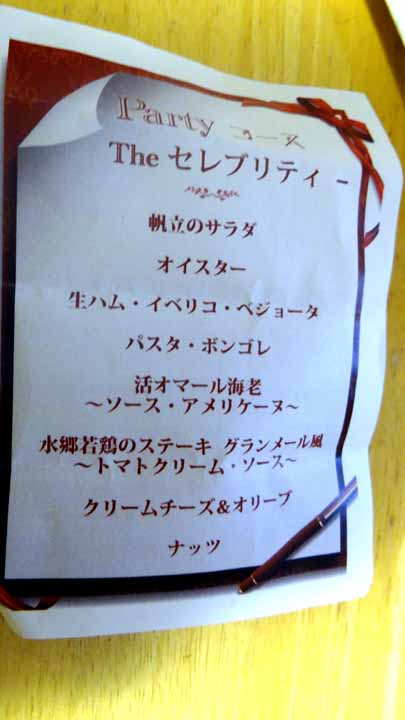 Party コース
The セレブリティ −
帆立のサラダ
オイスター
生ハム・イベリコ・ベジョータ
パスタ・ボンゴレ
活オマール海老
～ソース・アメリケーヌ～
水郷若鶏のステーキ グランメール風
～トマトクリーム・ソース～
クリームチーズ&オリーブ
ナッツ